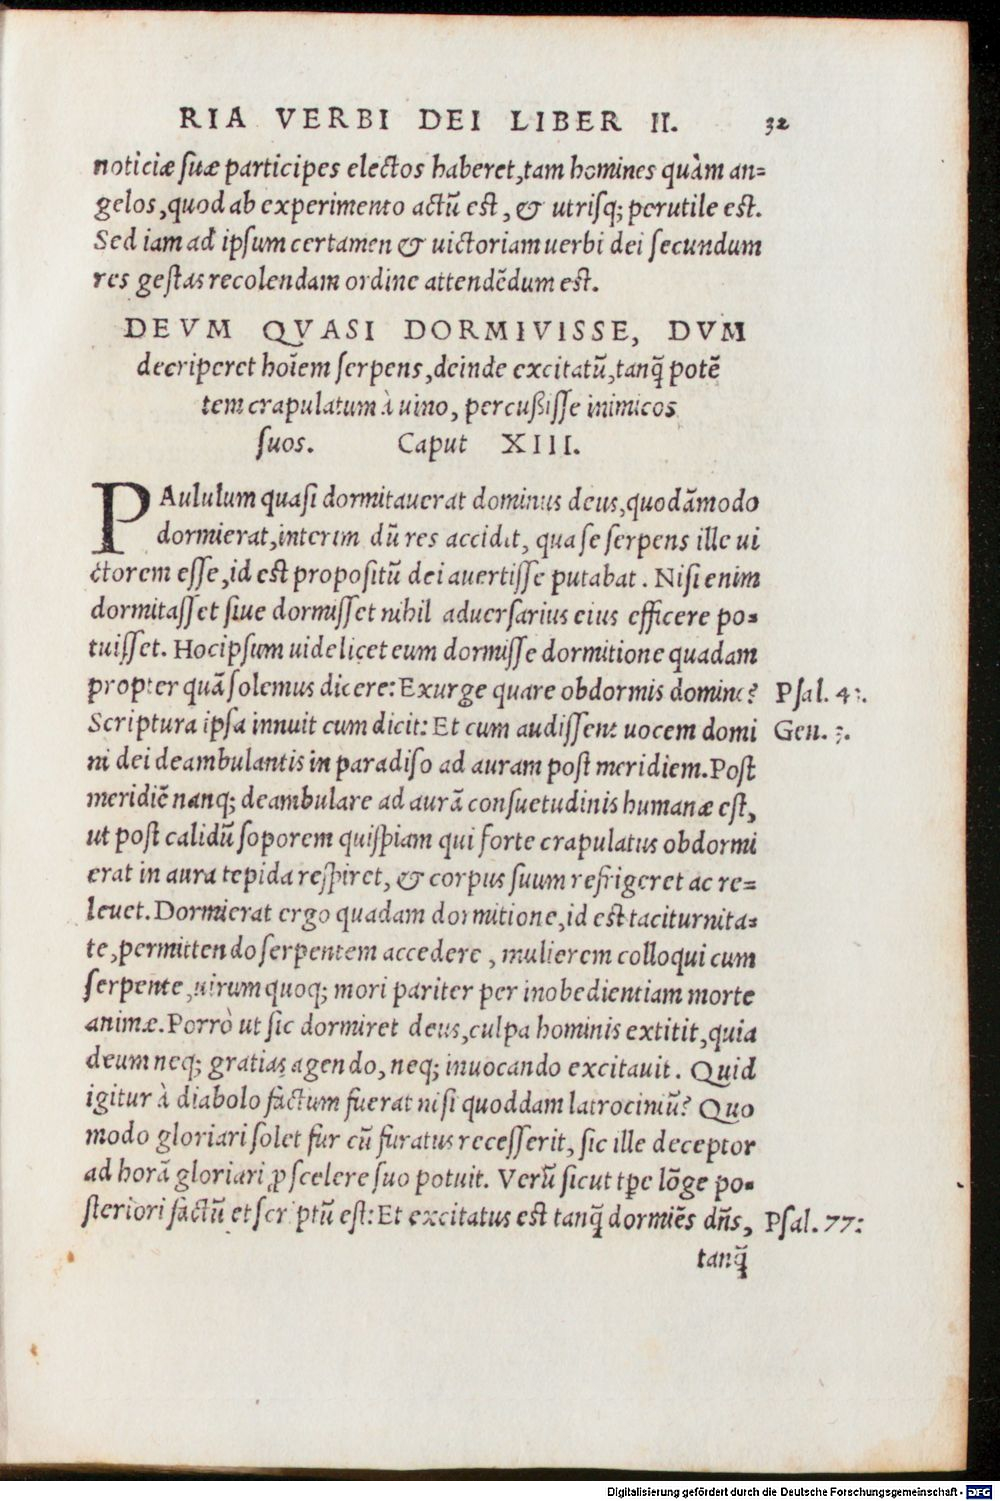 RIA VERBI DEI LIBER II. 32
noticiæ suæ participes electos haberet, tam homines quàm an=
gelos, quod ab experimento actũ est, & utrisq; perutile est.
Sed iam ad ipsum certamen & uictoriam uerbi dei secundum
res gestas recolendam ordine attendẽdum est.
DEVM QVASI DORMIVISSE, DVM
deciperet hoīem serpens, deinde excitatũ, tanq̃ potẽ
tem crapulatum à uino, percussisse inimicos
suos. Caput XIII.
PAululum quasi dormitauerat dominus deus, quodãmodo
dormierat, interim dũ res accidit, qua se serpens ille ui
ctorem esse, id est propositũ dei auertisse putabat. Nisi enim
dormitasset siue dormisset nihil aduersarius eius efficere po=
tuisset. Hoc ipsum uidelicet eum dormisse dormitione quadam
propter quã solemus dicere: Exurge quare obdormis domine? Psal. 43.
Scriptura ipsa innuit cum dicit: Et cum audissent uocem domi Gen. 3.
ni dei deambulantis in paradiso ad auram post meridiem. Post
meridiẽ nanq; deambulare ad aurã consuetudinis humanæ est,
ut post calidũ soporem quispiam qui forte crapulatus obdormi
erat in aura tepida respiret, & corpus suum refrigeret ac re=
leuet. Dormierat ergo quadam dormitione, id est taciturnita=
te, permittendo serpentem accedere, mulierem colloqui cum
serpente, uirum quoq; mori pariter per inobedientiam morte
animæ. Porrò ut sic dormiret deus, culpa hominis extitit, quia
deum neq; gratias agendo, neq; inuocando excitauit. Quid
igitur à diabolo factum fuerat nisi quoddam latrociniũ? Quo
modo gloriari solet fur cũ furatus recesserit, sic ille deceptor
ad horã gloriari ꝓ scelere suo potuit. Verũ sicut tꝑe lõge po=
steriori factũ et scriptũ est: Et excitatus est tanq̃ dormiẽs dñs, Psal. 77:
tanq̃
Digitalisierung gefördert durch die Deutsche Forschungsgemeinschaft - DFG